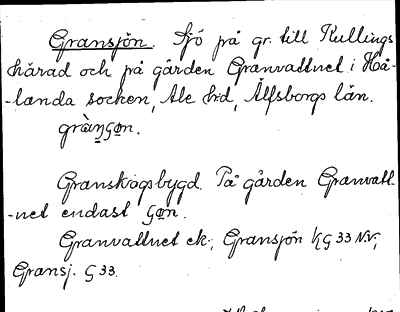 Gransjön. Sjö på gr. till Kullings
härad och på gården Granvattnet i Hå-
-landa socken, Ale hd, Älfsborgs län.
Granskogsbygd. På gården Granvatt-
-net endast
Granvattnet ek., Gransjön G 33 N.V.,
Gransj. G 33.